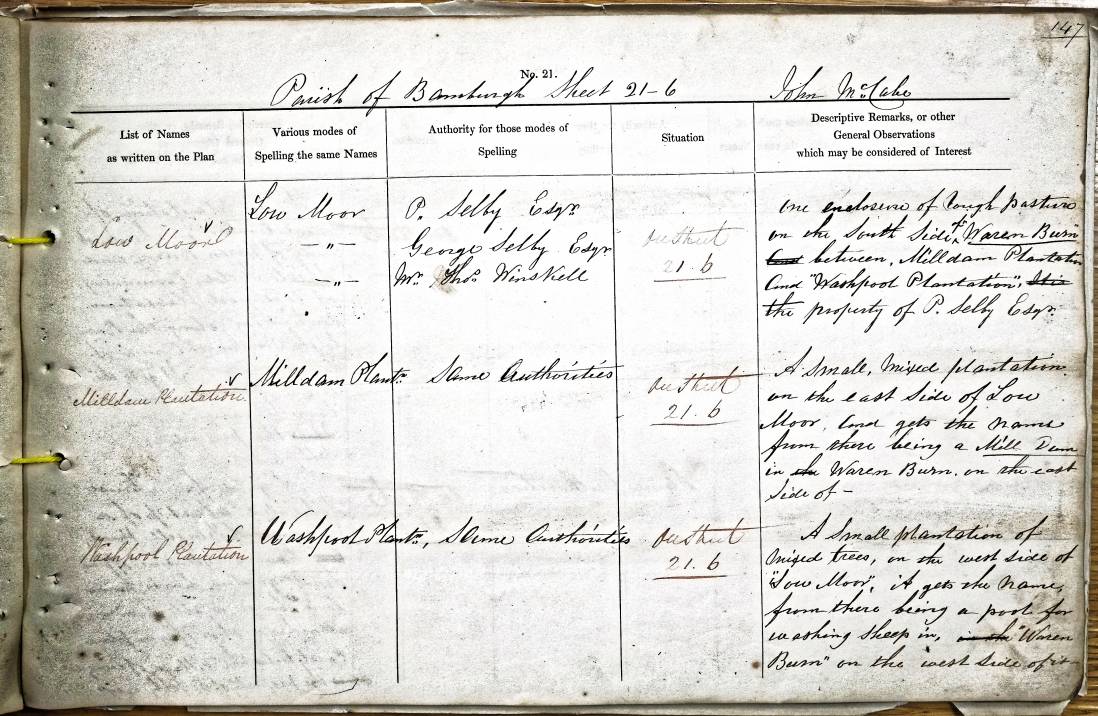 147
No. 21.
Parish of Bamburgh Sheet 21-6 John McCabe
List of Names
as written on the Plan
Various modes of
Spelling the same Names
Authority for those modes of
Spelling
Situation
Descriptive Remarks, or other
General Observations
which may be considered of Interest
Low Moor
Low Moor
—„—
—„—
P. Selby Esqr.
George Selby Esqr.
Mr. Thos. Winskell
On Sheet
21.6
One enclosure of rough pasture
on the South Side of Waren Burn
And between, Milldam Plantation
And "Washpool Plantation". It is
the property of P. Selby Esqr.
Milldam Plantation
Milldam Plantn.
Same Authorities
On Sheet
21.6
A Small, mixed plantation
on the east side of Low
Moor, And gets the name
from there being a Mill Dam
in the Waren Burn. on the east
Side of -
Washpool Plantation
Washpool Plantn.,
Same Authorities
On Sheet
21.6
A Small plantation of
mixed trees, on the west side of
"Low Moor", it gets the name,
from there being a pool for
washing sheep in, in the "Waren
Burn" on the west side of it